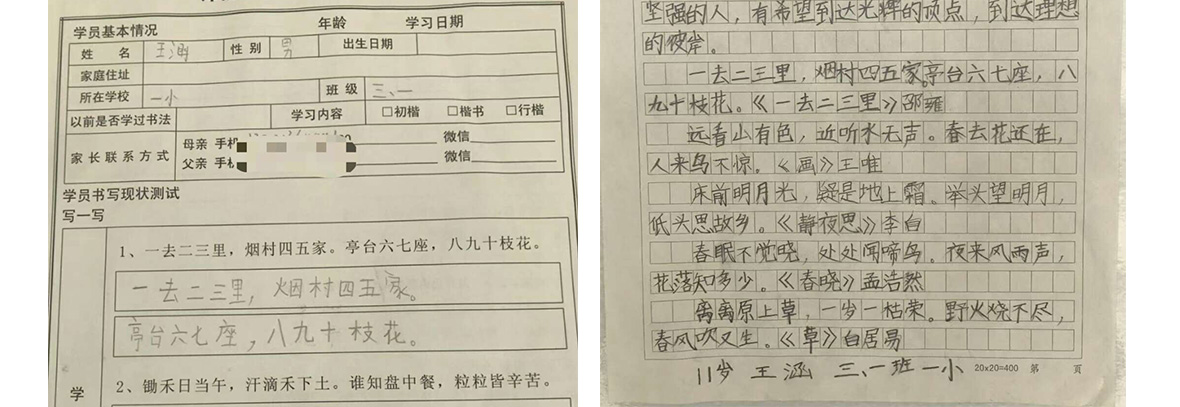 学员基本情况 年龄 学习日期
姓名 王涵 性别 男 出生日期
家庭住址
所在学校 一小 班级 三、一
以前是否学过书法 学习内容 □初楷 □楷书 □行楷
家长联系方式 母亲 手机 微信
父亲 手机 微信
学员书写现状测试
写一写
1、一去二三里，烟村四五家。亭台六七座，八九十枝花。
一去二三里，烟村四五家。
亭台六七座，八九十枝花。
学
2、锄禾日当午，汗滴禾下土。谁知盘中餐，粒粒皆辛苦。
坚强的人，有希望到达光辉的顶点，到达理想
的彼岸。
一去二三里，烟村四五家。亭台六七座，八
九十枝花。《一去二三里》邵雍
远看山有色，近听水无声。春去花还在，
人来鸟不惊。《画》王唯
床前明月光，疑是地上霜。举头望明月，
低头思故乡。《静夜思》李白
春眠不觉晓，处处闻啼鸟。夜来风雨声，
花落知多少。《春晓》孟浩然
离离原上草，一岁一枯荣。野火烧不尽，
春风吹又生。《草》白居易
11岁 王涵 三、一班 一小 20x20=400 第 页